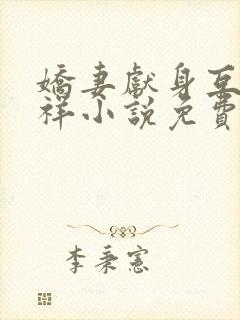 嬌妻獻身互
祥小說免費
李秉憲